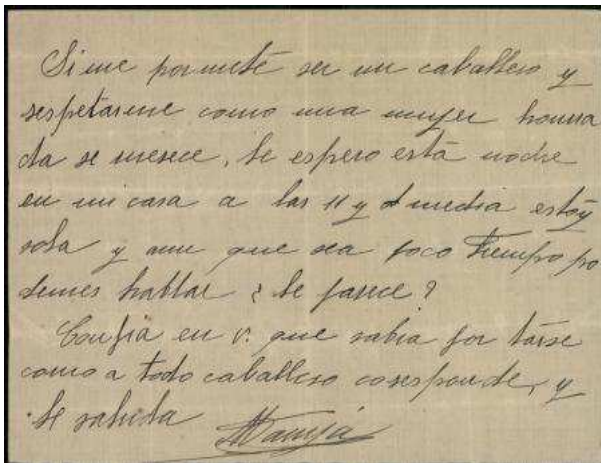 Si me permité ser un caballero y
respetarme como una mujer honra
da se merece, le espero está noche
en mi casa a las 11 y media estoy
sola y aun que sea poco tiempo po
demos hablar ¿ le parece ?
Confia en V. que sabia por tarse
como a todo caballero corresponde, y
le saluda